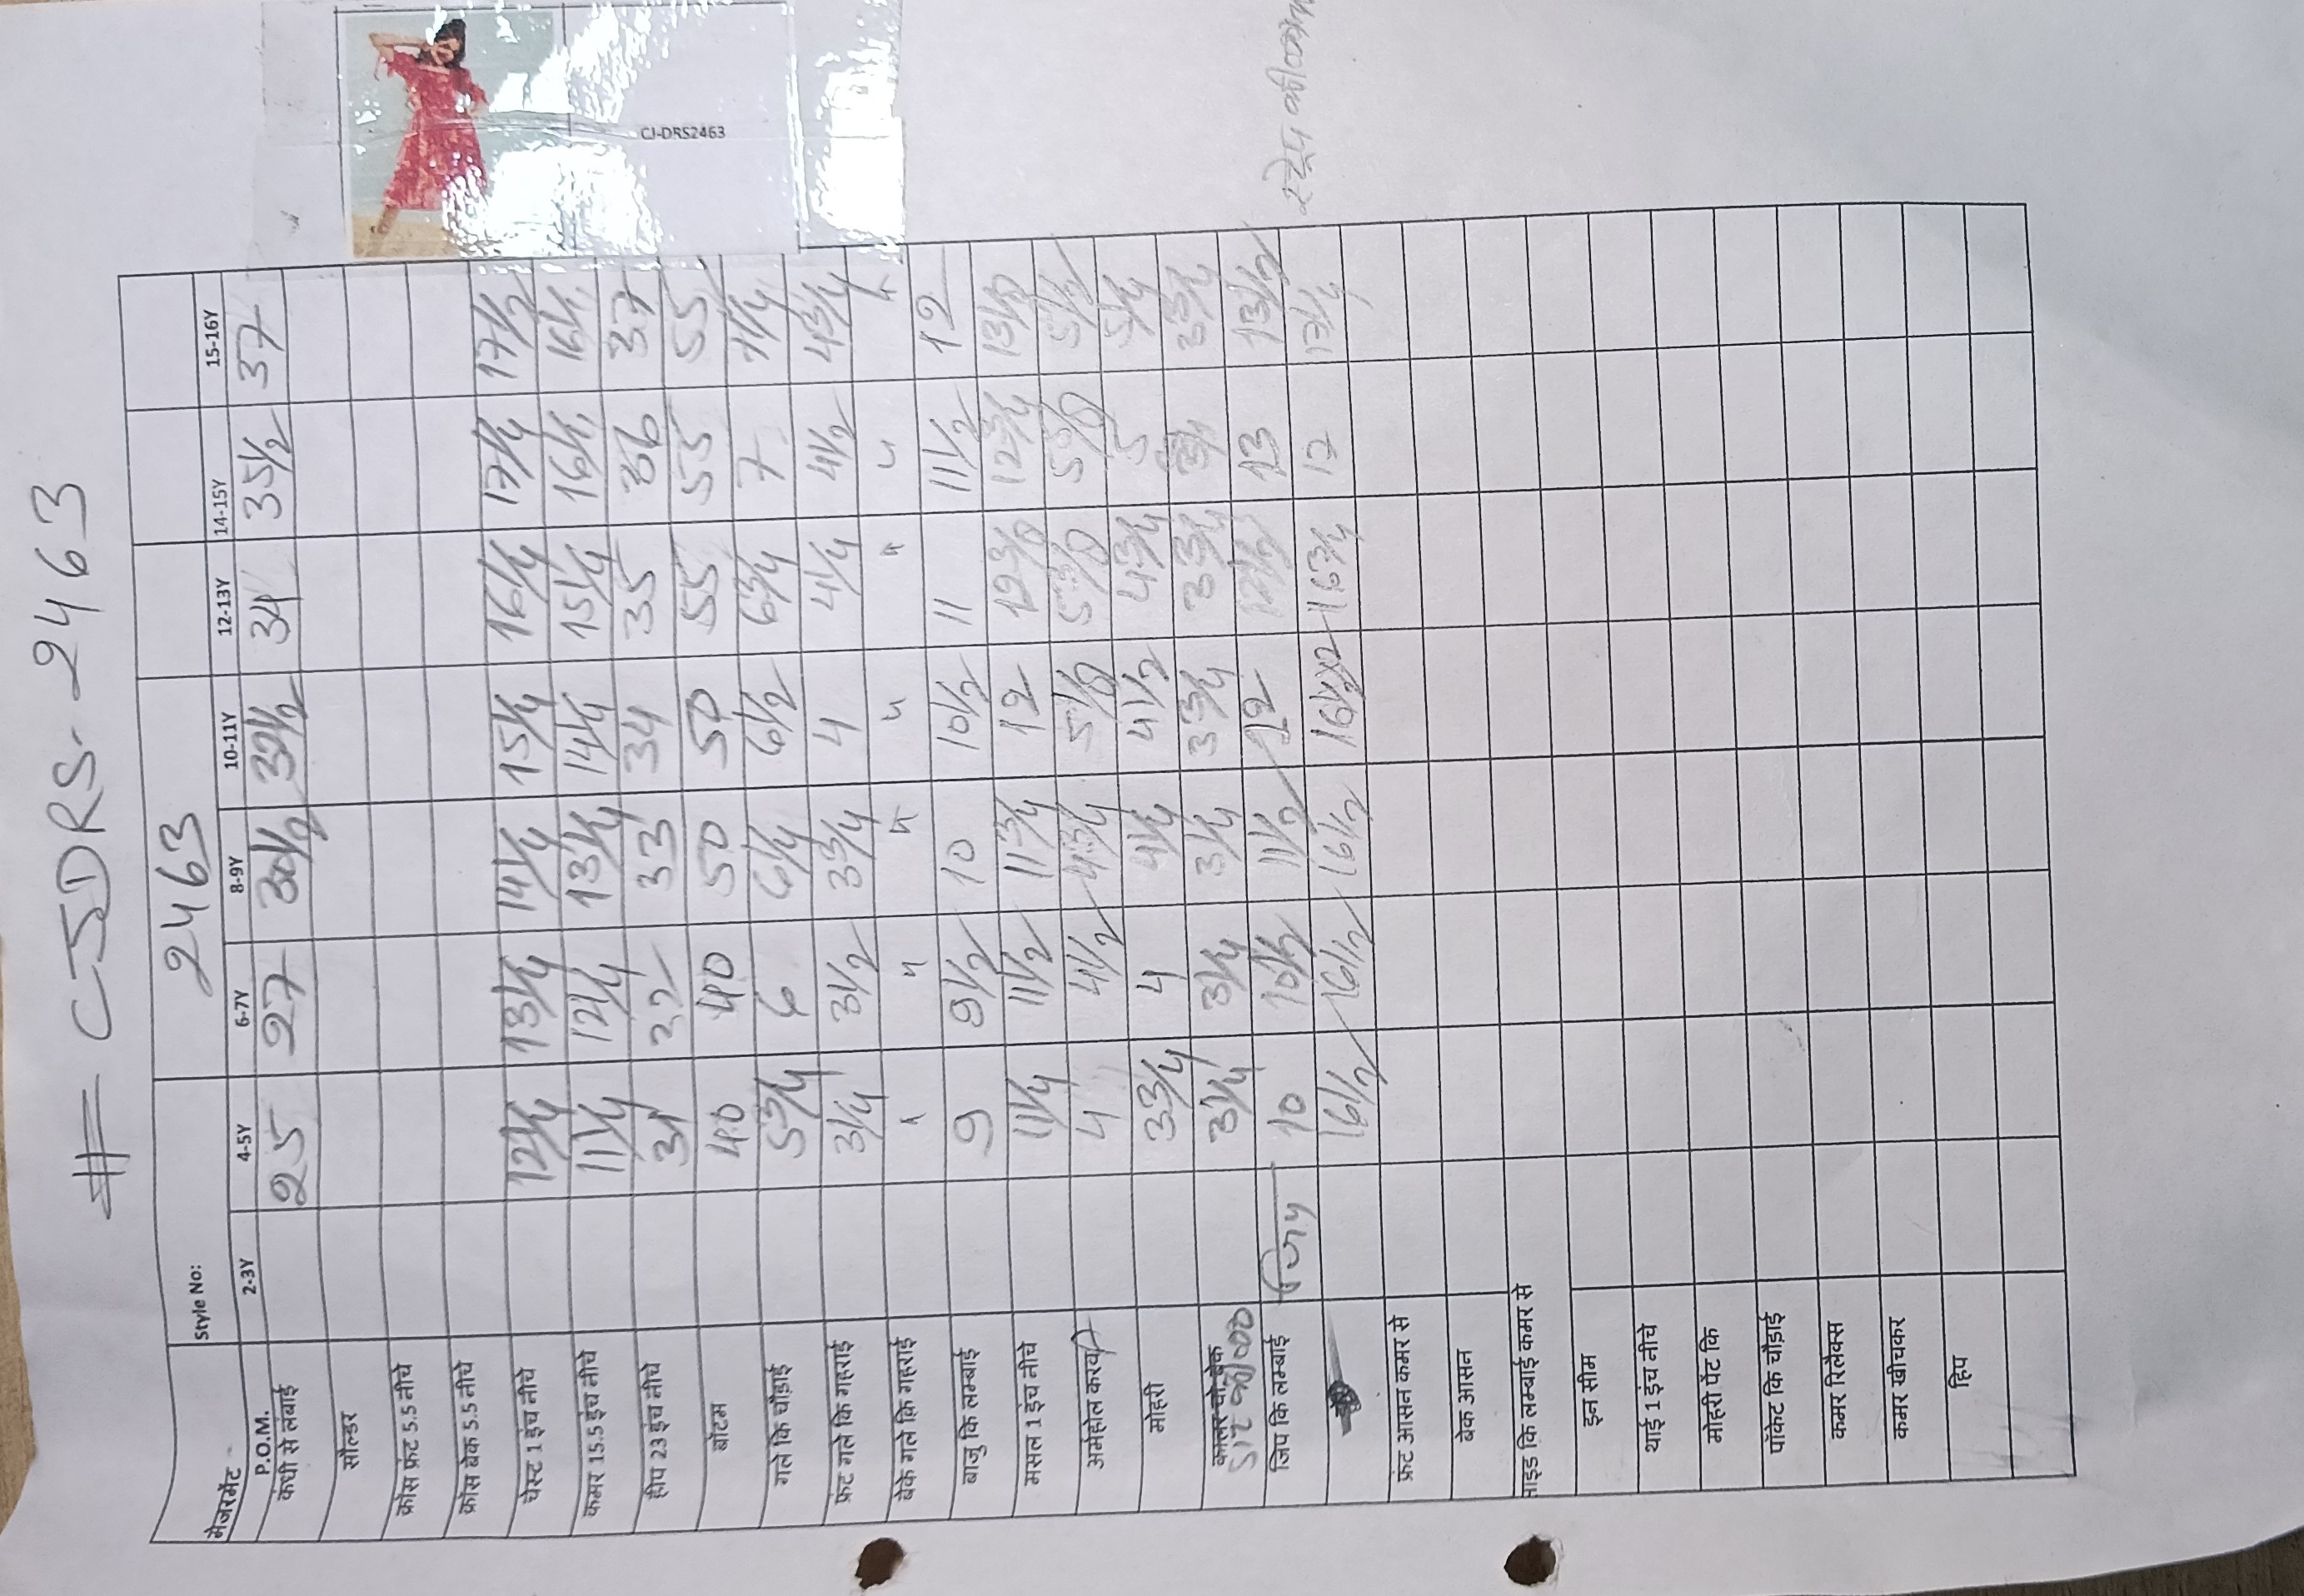 # CJDRS-2463
CJ-DRS2463
मेजरमेंट Style No: 2463
P.O.M. 2-3Y 4-5Y 6-7Y 8-9Y 10-11Y 12-13Y 14-15Y 15-16Y
कंधी से लंबाई 25 27 30 1/2 32 1/2 34 35 1/2 37
सौल्डर
क्रॉस फ्रंट 5.5 नीचे
क्रॉस बेक 5.5 नीचे
चेस्ट 1 इंच नीचे 12 1/4 13 1/4 14 1/4 15 1/4 16 1/4 17 1/4 17 1/2
कमर 15.5 इंच नीचे 11 1/4 12 1/4 13 1/4 14 1/4 15 1/4
हीप 23 इंच नीचे 31 32 33 34 35 36 37
बॉटम 40 40 50 50 55 55 55
गले कि चौड़ाई 5 3/4 6 6 1/4 6 1/2 6 3/4 7 7 1/4
फ्रंट गले कि गहराई 3 1/4 3 1/2 3 3/4 4 4 1/4 4 1/2 4 3/4
बेक गले कि गहराई
बाजु कि लम्बाई 9 9 1/2 10 10 1/2 11 11 1/2 12
मसल 1 इंच नीचे 11 1/4 11 1/2 11 3/4 12 12 3/8 12 3/4
अर्महोल करवा 4 4 1/2 4 3/4 5 1/8 5 3/8 5 1/2
मोहरी 3 3/4 4 4 1/4 4 1/2 4 3/4 5 5 1/4
3 1/4 3 1/4 3 1/4 3 3/4 3 3/4 3 3/4
जिप कि लम्बाई 10 10 1/2 11 1/2 12 12 1/2 13 13 1/2
16 1/2 16 1/2 16 1/2 16 1/2 x2 16 3/4 17 17 1/4
फ्रंट आसन कमर से
बेक आसन
साइड कि लम्बाई कमर से
इन सीम
थाई 1 इंच नीचे
मोहरी पेंट कि
पॉकेट कि चौड़ाई
कमर रिलैक्स
कमर खीचकर
हिप